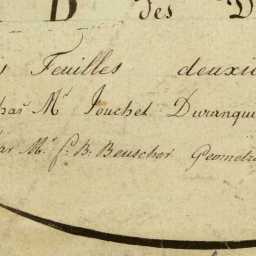 D des D
Feuilles deuxie
Par Mr Jouchet Duranqu
Par Mr J. B. Beuscher Geometr